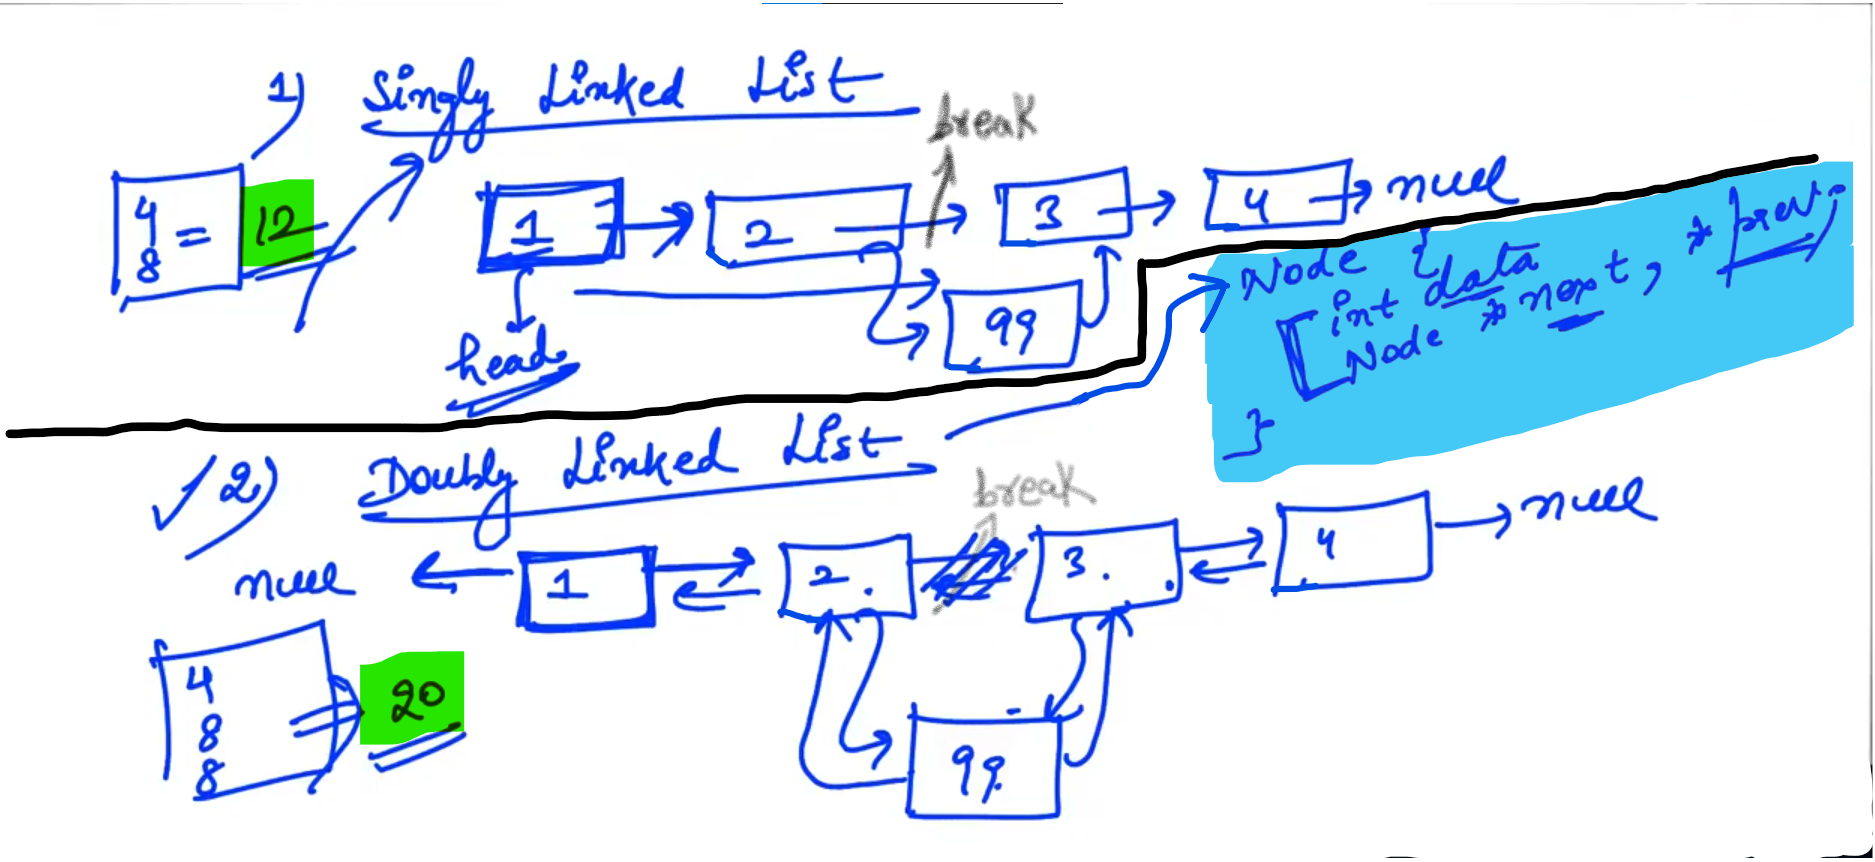 1) Singly Linked List
break
4
8 = 12
1 2 3 4 null
99
head
Node {
int data
Node *next, *prev;
}
2) Doubly Linked List
break
null 1 2. 3. 4 null
4
8
8
20
99